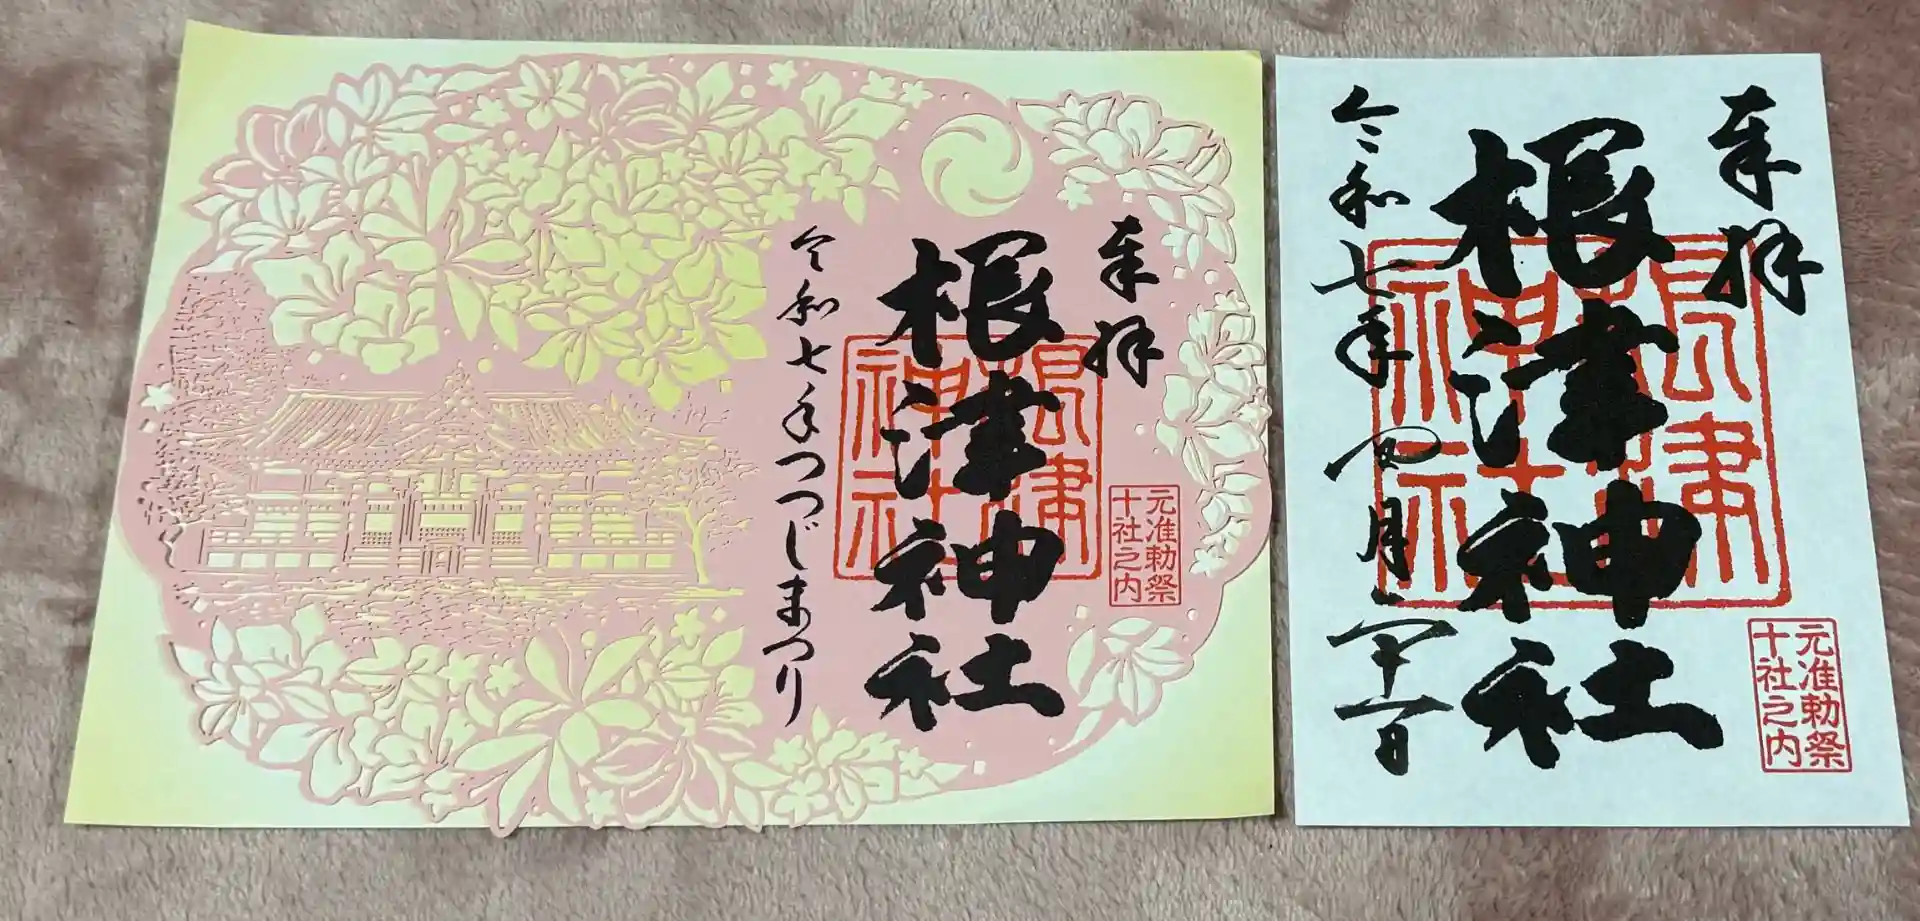 奉拝
根津神社
根津
神社
元准勅祭
十社之内
令和七年つつじまつり
奉拝
根津神社
根津
神社
元准勅祭
十社之内
令和七年四月二十一日